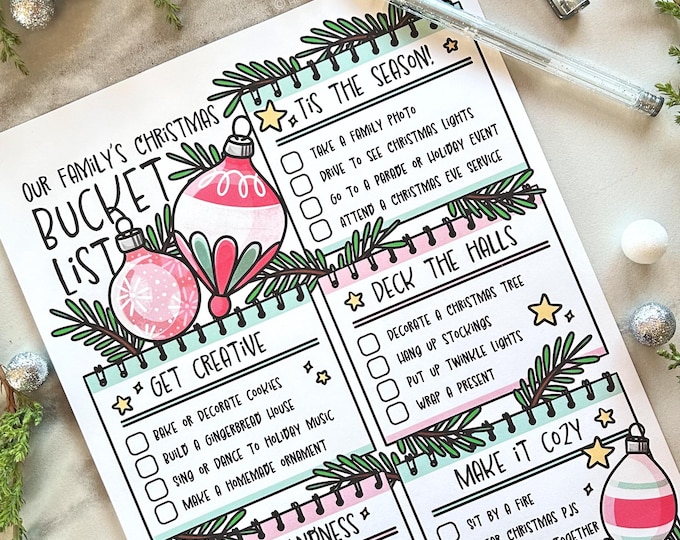 OUR FAMILY'S CHRISTMAS
BUCKET
LIST
'TIS THE SEASON!
TAKE A FAMILY PHOTO
DRIVE TO SEE CHRISTMAS LIGHTS
GO TO A PARADE OR HOLIDAY EVENT
ATTEND A CHRISTMAS EVE SERVICE
DECK THE HALLS
DECORATE A CHRISTMAS TREE
HANG UP STOCKINGS
PUT UP TWINKLE LIGHTS
WRAP A PRESENT
GET CREATIVE
BAKE OR DECORATE COOKIES
BUILD A GINGERBREAD HOUSE
SING OR DANCE TO HOLIDAY MUSIC
MAKE A HOMEMADE ORNAMENT
MAKE IT COZY
SIT BY A FIRE
CHRISTMAS PJS